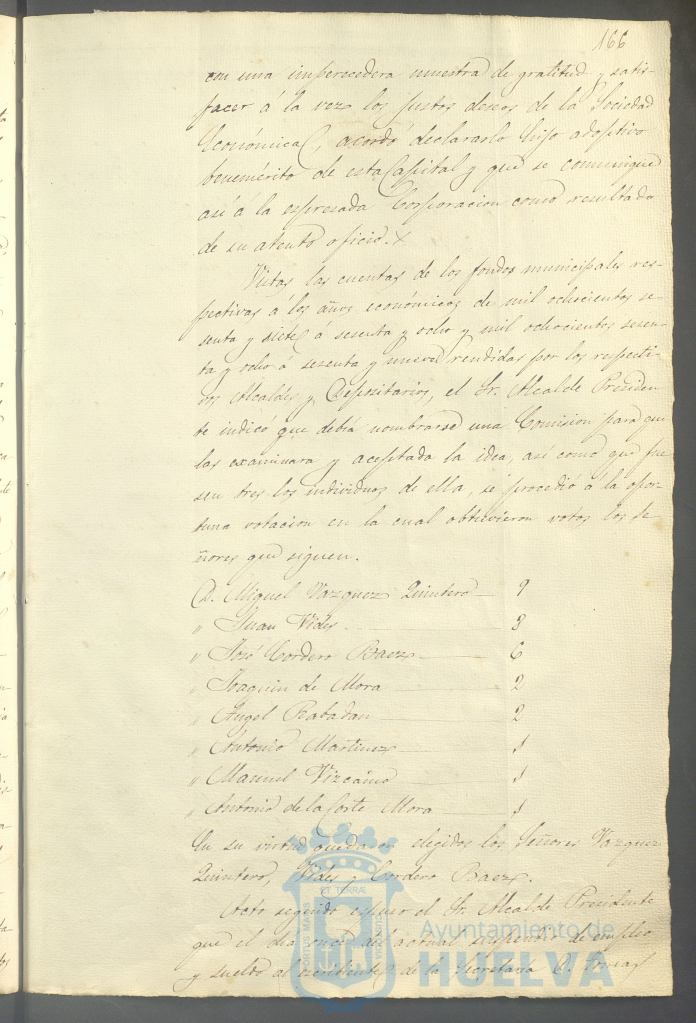 166
con una imperecedera muestra de gratitud y satis-
facer á la vez los justos deseos de la Sociedad
Económica, acordó declararlo hijo adoptivo
benemérito de esta Capital y que se comunique
así á la espresada Corporacion como resultado
de su atento oficio.
Vistas las cuentas de los fondos municipales res-
pectivas á los años económicos de mil ochocientos se-
senta y siete á sesenta y ocho y mil ochocientos sesen-
ta y ocho á sesenta y nueve rendidas por los respecti-
vos Alcaldes y Depositarios, el Sr. Alcalde Presiden
te indicó que debia nombrarse una Comision para que
las examinara y aceptada la idea, así como que fue
sen tres los individuos de ella, se procedió á la opor-
tuna votacion en la cual obtuvieron votos los Se-
ñores que siguen.
D. Miguel Vazquez Quintero 9
" Juan Vides 8
" José Cordero Baez 6
" Joaquin de Mora 2
" Angel Rabadan 2
" Antonio Martinez 1
" Manuel Vizcaino 1
" Antonio de la Corte Mora 1
En su virtud quedaron elegidos los Señores Vazquez
Quintero, Vides y Cordero Baez.
Acto seguido espuso el Sr. Alcalde Presidente
que el dia once del actual suspendió de empleo
y sueldo al escribiente de la Secretaría D. Tomas
PORTUS MARIS ET TERRÆ
Ayuntamiento de
HUELVA